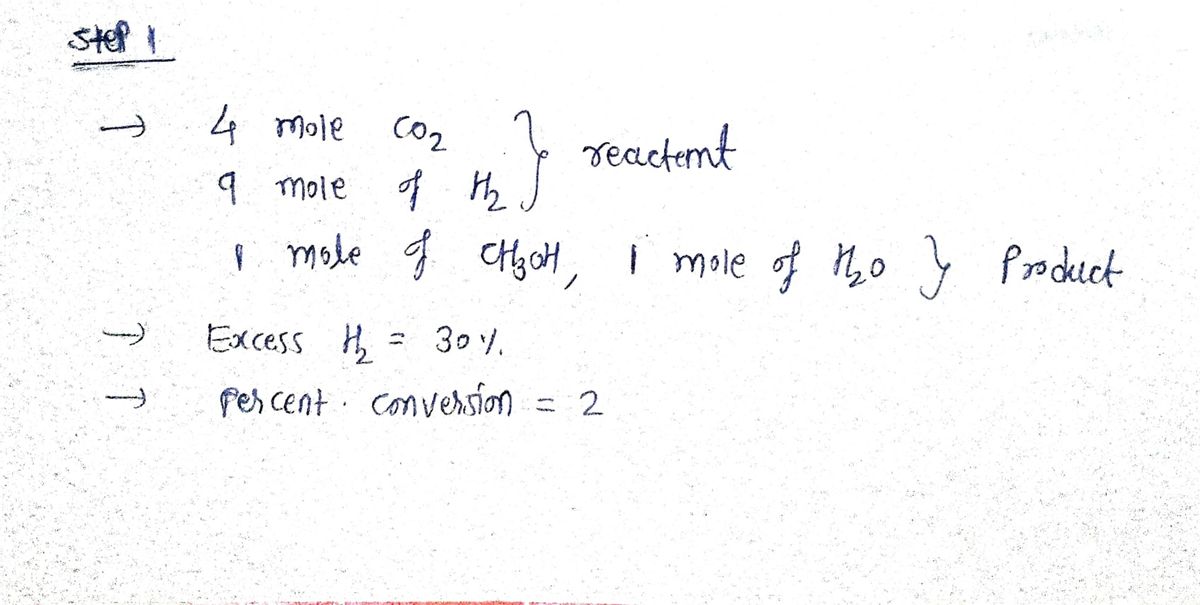 Step 1
→ 4 mole CO₂
9 mole of H₂ } reactemt
1 mole of CH₃OH, 1 mole of H₂O } Product
→ Excess H₂ = 30%.
→ percent. conversion = 2